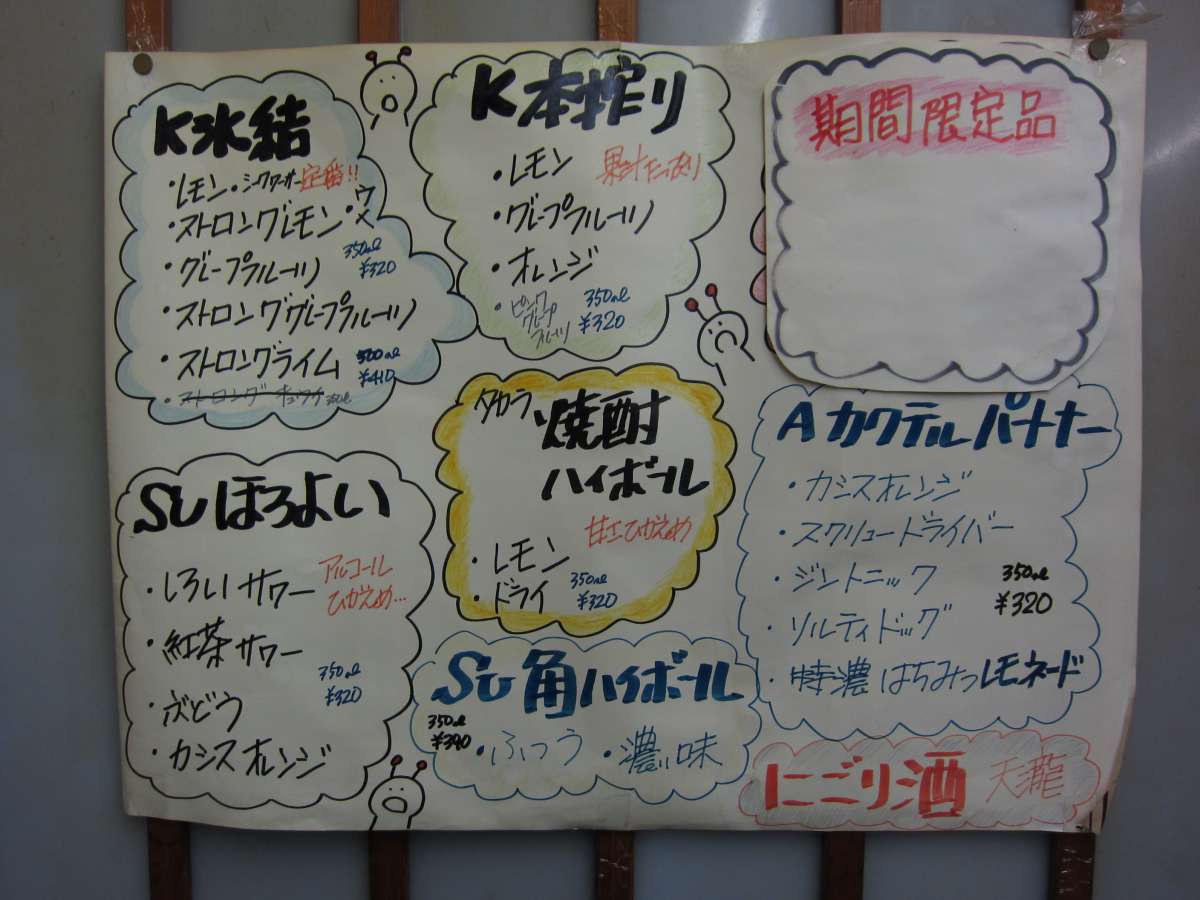 K氷結
・レモン・シークワーサー 定番!!
・ストロングレモン・ウメ
・グレープフルーツ 350ml ¥320
・ストロンググレープフルーツ
・ストロングライム 500ml ¥410
K本搾り
・レモン 果汁たっぷり
・グレープフルーツ
・オレンジ
・ピンクグレープフルーツ 350ml ¥320
期間限定品
Suほろよい
・しろいサワー アルコールひかえめ…
・紅茶サワー
350ml ¥320
・ぶどう
・カシスオレンジ
タカラ 焼酎
ハイボール
甘エひかえめ
・レモン
・ドライ 350ml ¥320
Su角ハイボール
350ml
・ふつう ・濃い味
Aカクテルパートナー
・カシスオレンジ
・スクリュードライバー
・ジントニック 350ml
・ソルティドッグ ¥320
・特濃はちみつレモネード
にごり酒 天瀧